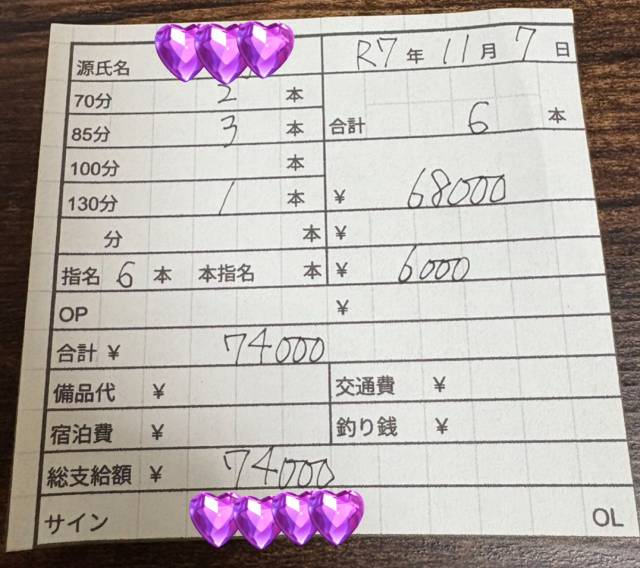 源氏名 R7年11月7日
70分 2 本
85分 3 本 合計 6 本
100分 本
130分 1 本 ¥ 68000
分 本 ¥
指名 6 本 本指名 本 ¥ 6000
OP ¥
合計 ¥ 74000
備品代 ¥ 交通費 ¥
宿泊費 ¥ 釣り銭 ¥
総支給額 ¥ 74000
サイン OL